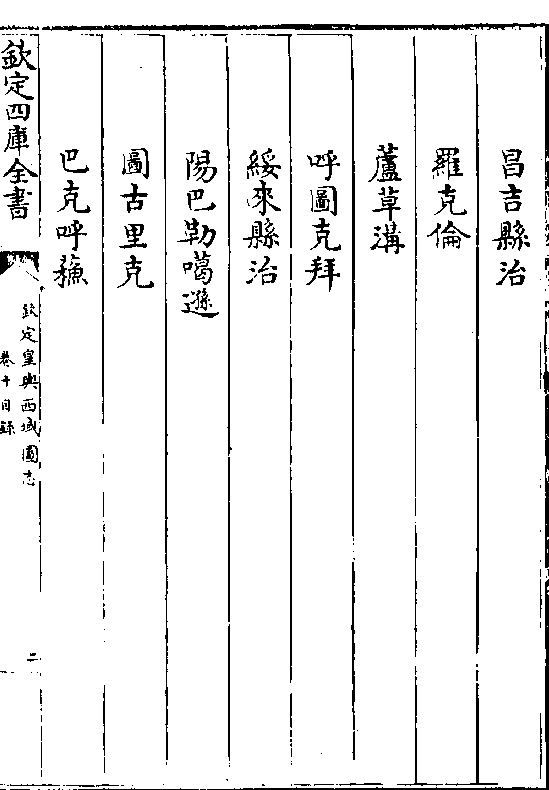 昌吉縣治
羅克倫
蘆草溝
呼圖克拜
綏來縣治
陽巴勒噶遜
圖古里克
巴克呼蘓
欽定四庫全書
欽定皇輿西域圖志
卷十目錄
二